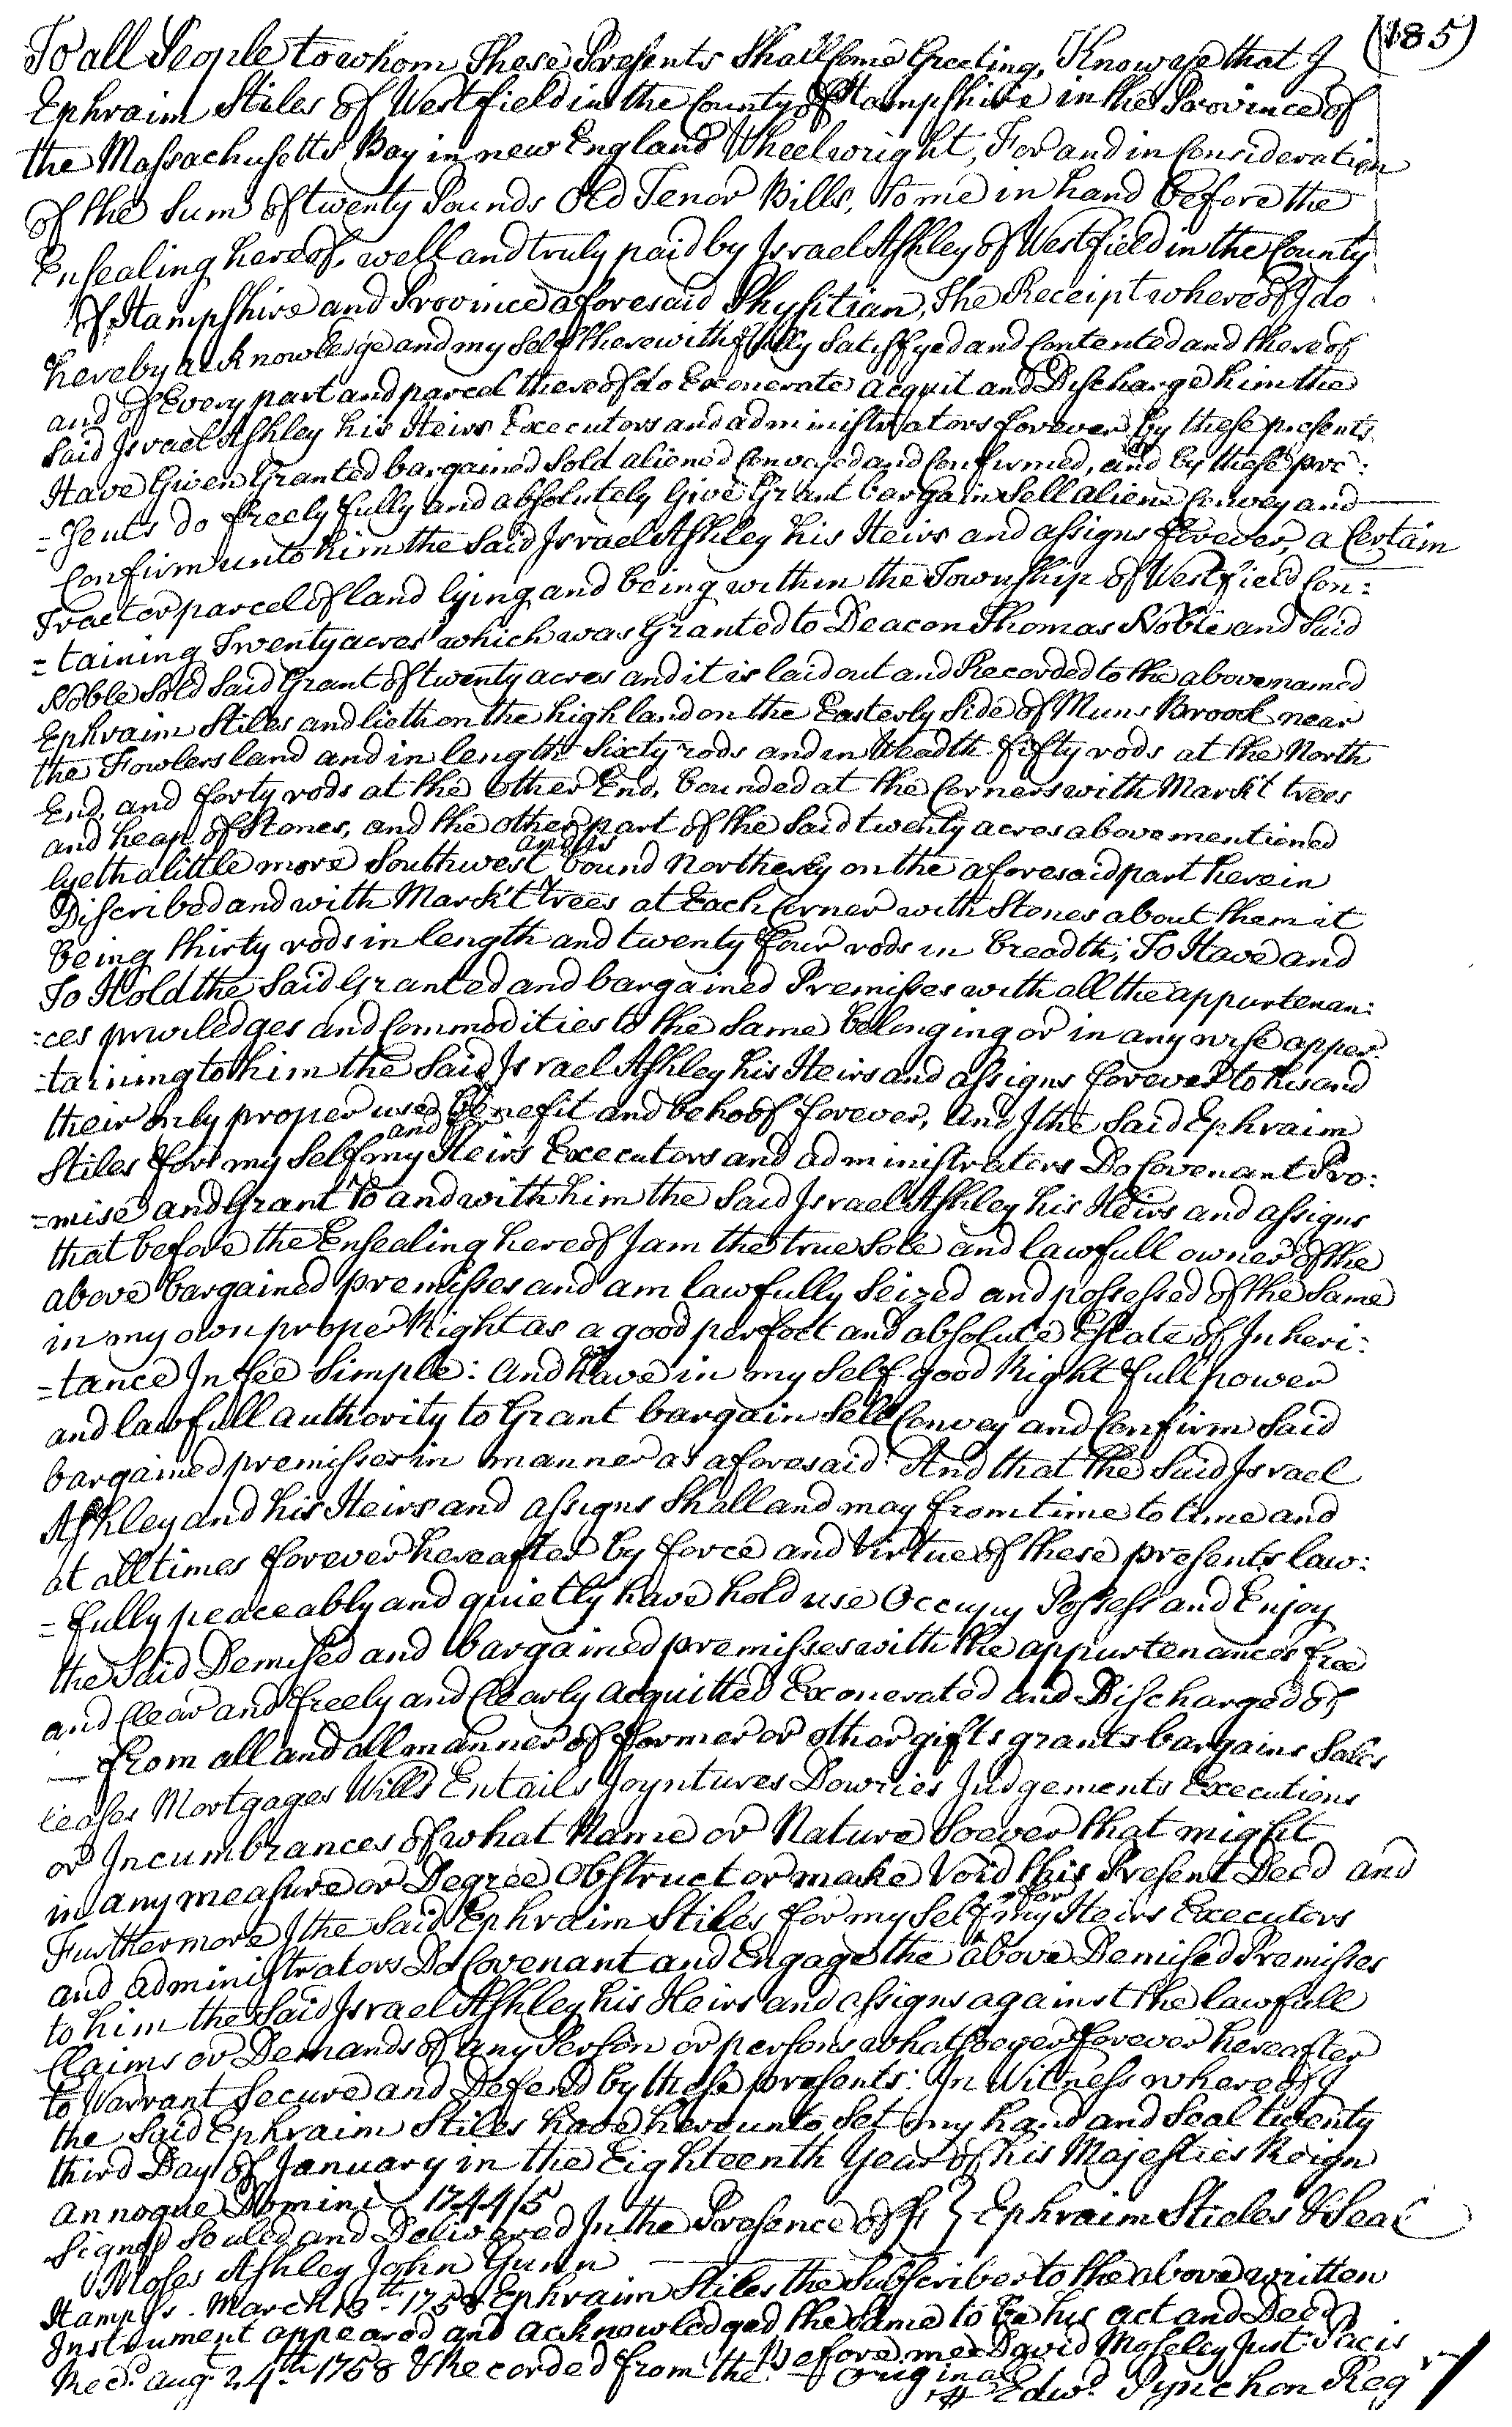 (185)
To all People to whom These Presents Shall Come Greeting, Know ye that I
Ephraim Stiles of Westfield in the County of Hampshire in the Province of
the Massachusetts Bay in new England Wheelwright, For and in Consideration
of the Sum of twenty Pounds Old Tenor Bills, to me in hand before the
Ensealing hereof, well and truly paid by Israel Ashley of Westfield in the County
of Hampshire and Province aforesaid Physitian, The Receipt whereof I do
hereby acknowledge and my self therewith fully Satisfyed and Contented and thereof
and of Every part and parcel thereof do Exonerate acquit and Discharge him the
Said Israel Ashley his Heirs Executors and administrators forever by these presents
Have Given Granted bargained Sold aliened Conveyed and Confirmed, and by these pre:
=sents do freely fully and absolutely Give Grant bargain Sell aliene Convey and
Confirm unto him the Said Israel Ashley his Heirs and assigns forever, a Certain
Tract or parcel of land lying and being within the Township of Westfield Con:
=taining Twenty acres which was Granted to Deacon Thomas Noble and Said
Noble Sold Said Grant of twenty acres and it is laid out and Recorded to the above named
Ephraim Stiles and lieth on the high land on the Easterly Side of Muns Brook near
the Fowlers land and in length Sixty rods and in breadth fifty rods at the North
End, and forty rods at the Other End, bounded at the Corners with Markt trees
and heap of Stones, and the other part of the Said twenty acres above mentioned
lyeth a little more Southwest and its bound Northerly on the aforesaid part herein
Discribed and with Mark't trees at Each Corner with Stones about them it
being thirty rods in length and twenty four rods in breadth; To Have and
To Hold the Said Granted and bargained Premisses with all the appurtenan:
:ces priviledges and Commodities to the Same belonging or in any wise apper:
:taining to him the Said Israel Ashley his Heirs and assigns forever to his and
their only proper use benefit and behoof forever, And I the Said Ephraim
Stiles for my Self and for my Heirs Executors and administrators Do Covenant Pro:
=mise and Grant to and with him the Said Israel Ashley his Heirs and assigns
that before the Ensealing hereof I am the true Sole and lawfull owner of the
above bargained premisses and am lawfully Seized and possessed of the Same
in my own proper Right as a good perfect and absolute Estate of Inheri:
=tance In fee Simple: And have in my Self good Right full power
and lawfull authority to Grant bargain Sell Convey and Confirm Said
bargained premisses in manner as aforesaid: And that the Said Israel
Ashley and his Heirs and assigns Shall and may from time to time and
at all times forever hereafter by force and Virtue of these presents law:
=fully peaceably and quietly have hold use Occupy Possess and Enjoy
the Said Demised and bargained premisses with the appurtenances free
and Clear and freely and Clearly acquitted Exonerated and Discharged of,
from all and all manner of former or other gifts grants bargains Sales
leases Mortgages Wills Entails Joyntures Dowries Judgements Executions
or Incumbrances of what Name or Nature Soever that might
in any measure or Degree Obstruct or make Void this Present Deed and
Furthermore I the Said Ephraim Stiles for my Self & for my Heirs Executors
and administrators Do Covenant and Engage the above Demised Premisses
to him the Said Israel Ashley his Heirs and assigns against the lawfull
Claims or Demands of any Person or persons whatsoever forever hereafter
to Warrant Secure and Defend by these presents: In Witness whereof I
the Said Ephraim Stiles have hereunto Set my hand and Seal twenty
third Day of January in the Eighteenth Year of his Majesties Reign
annoque Domini 1744/5
Signed Sealed and Delivered In the Presence of us } Ephraim Stieles & Seal
Moses Ashley John Gunn
Hampsr. March 13th. 1758 Ephraim Stiles the Subscriber to the above written
Instrument appeared and acknowledged the Same to be his act and Deed
Before me David Moseley Just. Pacis
Recd. Aug. 24th. 1758 & Recorded from the Original
Edwd. Pynchon Regr